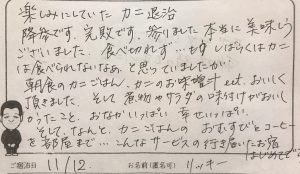 楽しみにしていた カニ退治
降参です。完敗です。参りました 本当に美味しう
ございました、食べ切れず… もう しばらくはカニ
は食べられないなぁ、と思っていましたが、
朝食のカニごはん、カニのお味噌汁 ect. おいしく
頂きました。そして 煮物やサラダの味付けがおいし
かったこと、おなかいっぱい 幸せいっぱい。
そして、なんと、カニごはんの おむすびとコーヒー
を部屋まで… こんなサービスの行き届いたお宿
はじめてです
ご宿泊日 11/12. お名前(匿名可) リッキー